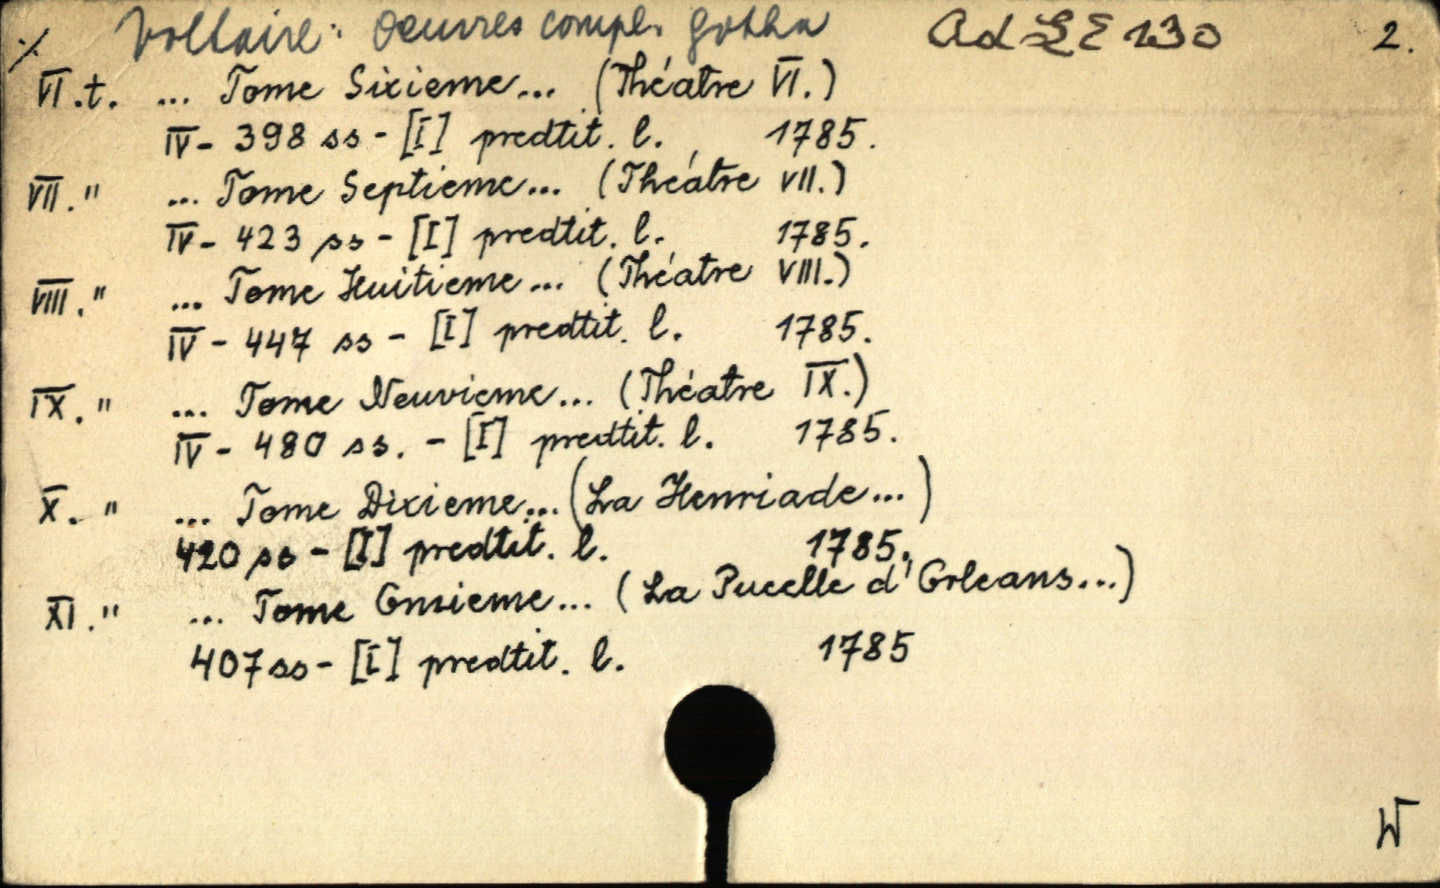 ⁒ Voltaire: Oeuvres compl. Gotha Ad LE 130 2.
VI.t. ... Tome Sixieme... (Théatre VI.)
IV- 398 ss - [I] predtit. l. 1785.
VII. " ... Tome Septieme... (Théatre VII.)
IV- 423 ss - [I] predtit. l. 1785.
VIII. " ... Tome Huitieme... (Théatre VIII.)
IV - 447 ss - [I] predtit. l. 1785.
IX. " ... Tome Neuvieme... (Théatre IX.)
IV - 480 ss. - [I] predtit. l. 1785.
X. " ... Tome Dixieme... (La Henriade...)
420 ss - [I] predtit. l. 1785.
XI. " ... Tome Onzieme... (La Pucelle d'Orleans...)
407 ss - [I] predtit. l. 1785
W